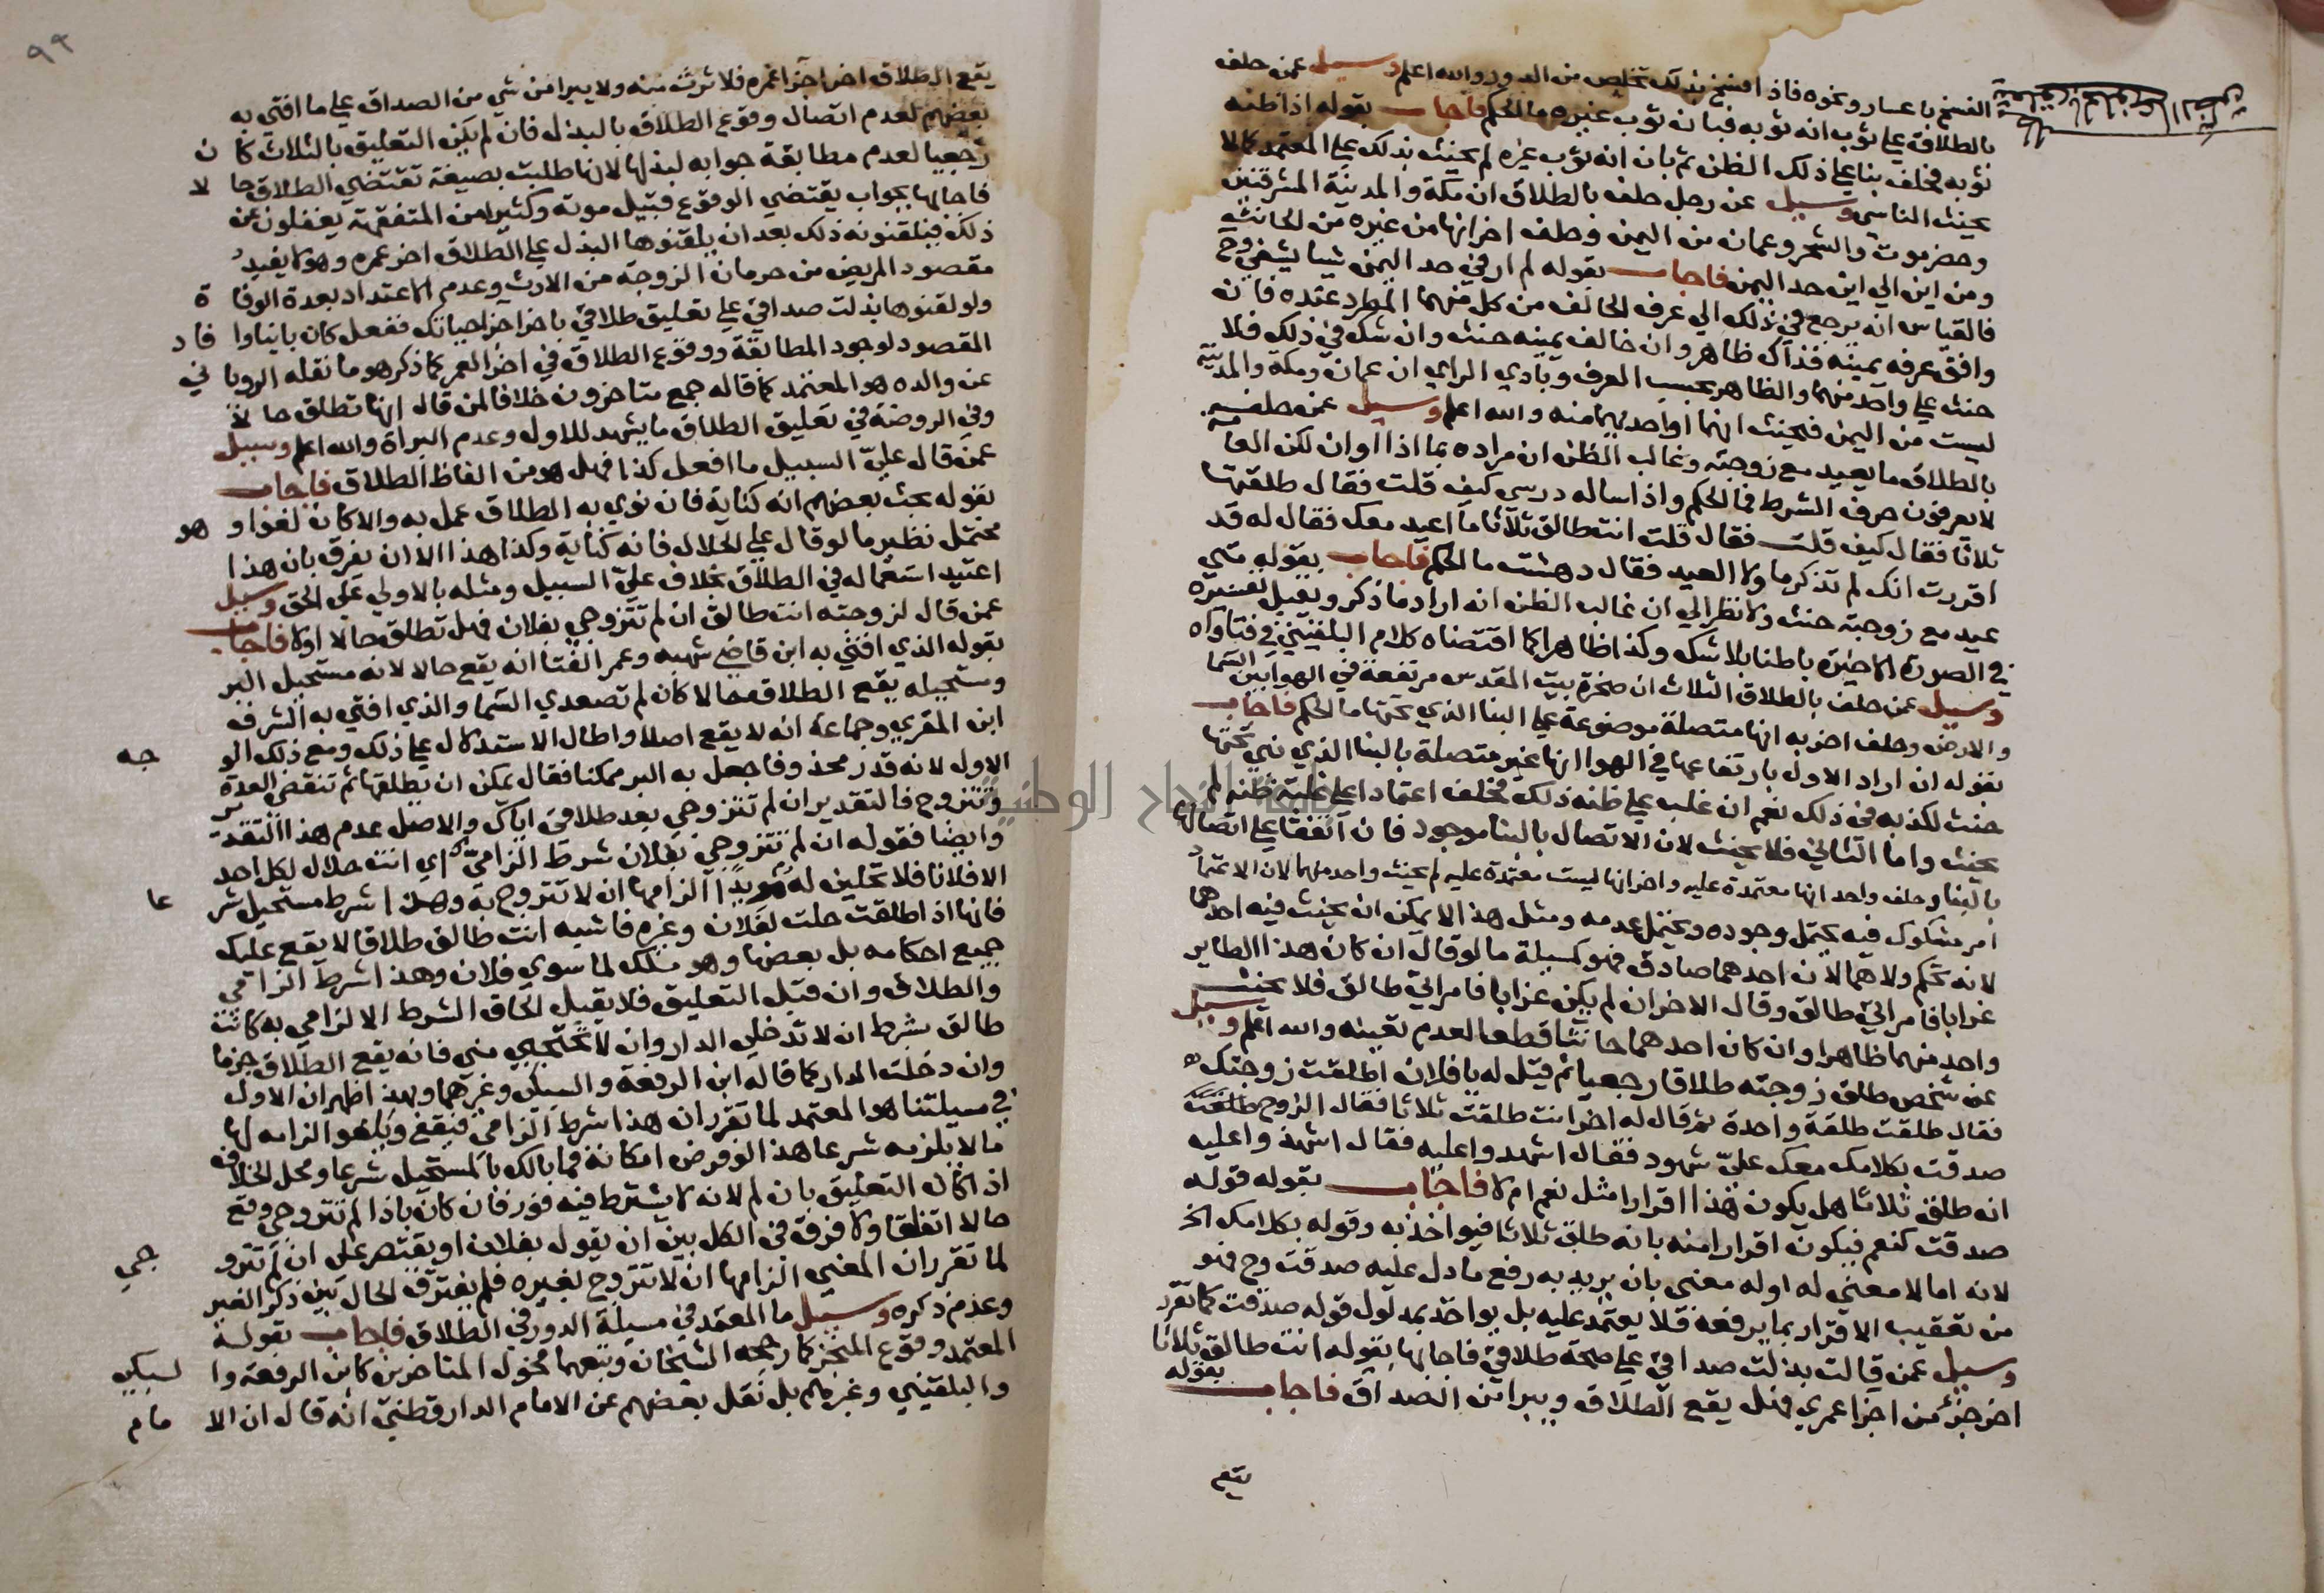 الفسخ باعسار ونحوه فاذا افسخ بذلك تخلص من الدور والله اعلم وسيل عمن حلف
بالطلاق على ثوب انه ثوبه فبان ثوب غيره ما الحكم فاجاب بقوله اذا ظنه
ثوبه فحلف بنا على ذلك الظن ثم بان انه ثوب غيره لم يحنث بذلك على المعتمد كما لا
يحنث الناسي وسيل عن رجل حلف بالطلاق ان مكة والمدينة المشرفتين
وحضرموت والشحر وعمان من اليمن وحلف اخر انها من غيره من الحانث
ومن اين الي اين حد اليمن فاجاب بقوله لم ار في حد اليمن شيا يشفي وح
فالقياس انه يرجع في ذلك الي عرف الحالف من كل منهما المطرد عنده فان
وافق عرفه يمينه فذاك ظاهر وان خالف يمينه حنث وان شك في ذلك فلا
حنث على واحد منهما والظاهر بحسب العرف وبادي الراي ان عمان ومكة والمدينة
ليست من اليمن فيحنث انهما او احديهما منه والله اعلم وسيل عمن حلف
بالطلاق ما يعيد مع زوجته وغالب الظن ان مراده بما اذا او ان لكن العامة
لا يعرفون حرف الشرط فما الحكم واذا ساله درسي كيف قلت فقال طلقتها
ثلاثا فقال كيف قلت فقال قلت انت طالق ثلاثا ما اعيد معك فقال له قد
اقررت انك لم تذكر ما ولا العيد فقال دهشت ما الحكم فاجاب بقوله متي
عيد مع زوجته حنث ولا نظر الي ان غالب الظن انه اراد ما ذكر ويقبل تفسيره
في الصورة الاخيرة باطنا بلا شك وكذا ظاهرا كما اقتضاه كلام البلقيني في فتاواه
وسيل عمن حلف بالطلاق الثلاث ان صخرة بيت المقدس مرتفعة في الهوا بين السما
والارض وحلف اخر به انها متصلة موضوعة على البنا الذي تحتها ما الحكم فاجاب
بقوله ان اراد الاول بارتفاعها في الهوا انها غير متصلة بالبنا الذي تحتها
حنث لكذبه في ذلك نعم ان غلب على ظنه ذلك فحلف اعتمادا على غلبة ظنه لم
يحنث واما الثاني فلا يحنث لان الاتصال بالبنا موجود فان اتفقا على اتصالها
بالبنا وحلف واحد انها معتمدة عليه واخر انها ليست معتمدة عليه لم يحنث واحد منهما لان الاعتماد
امر مشكوك فيه يحتمل وجوده ويحتمل عدمه ومثل هذا لا يمكن ان يحنث فيه احدهما
لانه تحكم ولا هما لان احدهما صادق فهو كمسيلة ما لو قال ان كان هذا الطاير
غرابا فامراتي طالق وقال الاخر ان لم يكن غرابا فامراتي طالق فلا يحنث
واحد منهما ظاهرا وان كان احدهما حانثا قطعا لعدم تعينه والله اعلم وسيل
عن شخص طلق زوجته طلاقا رجعيا ثم قيل له يا فلان اطلقت زوجتك
فقال طلقت طلقة واحدة ثم قال له اخر انت طلقت ثلاثا فقال الزوج طلقت
صدقت بكلامك معك علي شهود فقال اشهدوا عليه فقال اشهدوا عليه
انه طلق ثلاثا هل يكون هذا اقرارا مثل نعم ام لا فاجاب بقوله قوله
صدقت كنعم فيكون اقرارا منه بانه طلق ثلاثا فيواخذ به وقوله بكلامك الخ
لانه اما لا معني له اوله معني بان يريد به رفع ما دل عليه صدقت وح فهو
من تعقيب الاقرار بما يرفعه فلا يعتمد عليه بل يواخذ بمدلول قوله صدقت كما تقرر
وسيل عمن قالت بذلت صداقي على صحة طلاقي فاجابها بقوله انت طالق ثلاثا
اخر جزء من اجزا عمري فهل يقع الطلاق ويبرا من الصداق فاجاب بقوله
يقع
٩٩
يقع الطلاق اخر اجزا عمره فلا ترث منه ولا يبرا من شي من الصداق على ما افتي به
بعضهم لعدم اتصال وقوع الطلاق بالبذل فان لم يكن التعليق بالثلاث كان
رجعيا لعدم مطابقة جوابه لبذلها لانها طلبت بصيغة تقتضي الطلاق حالا
فاجابها بجواب يقتضي الوقوع قبيل موته وكثير من المتفقهة يغفلون عن
ذلك فيلقنونه ذلك بعد ان يلقنوها البذل على الطلاق اخر عمره وهو لا يفيد
مقصود المريض من حرمان الزوجة من الارث وعدم الاعتداد بعدة الوفاة
ولو لقنوها بذلت صداقي على تعليق طلاقي باخر اجزا حياتك ففعل كان باينا وافاد
المقصود لوجود المطابقة ووقوع الطلاق في اخر العمر كما ذكر هو ما نقله الروياني
عن والده هو المعتمد كما قاله جمع متاخرون خلافا لمن قال انها تطلق حالا
وفي الروضة في تعليق الطلاق ما يشهد للاول وعدم البراة والله اعلم وسيل
عمن قال علي السبيل ما افعل كذا فهل هو من الفاظ الطلاق فاجاب
بقوله بحث بعضهم انه كناية فان نوي به الطلاق عمل به والا كان لغوا وهو
محتمل نظير ما لو قال علي الحلال فانه كناية وكذا هذا الا ان يفرق بان هذا
اعتيد استعماله في الطلاق بخلاف علي السبيل ومثله بالاولي علي الحق وسيل
عمن قال لزوجته انت طالق ان لم تتزوجي بفلان فهل تطلق حالا اولا فاجاب
بقوله الذي افتي به ابن قاضي شهبه وعمر الفتا انه يقع حالا لانه مستحيل البر
ومستحيله يقع الطلاق حالا كان لم تصعدي السما والذي افتي به الشرف
ابن المقري وجماعة انه لا يقع اصلا واطال الاستدلال على ذلك ومع ذلك الوجه
الاول لانه قدر محذوفا جعل به البر ممكنا فقال يمكن ان يطلقها ثم تنقضي العدة
وتتزوج فالتقدير ان لم تتزوجي بعد طلاقي اياك والاصل عدم هذا التقدير
وايضا فقوله ان لم تتزوجي بفلان شرط الزامي اي انت حلال لكل احد
الا فلانا فلا تحلين له مريدا الزامها ان لا تتزوج به وهذا شرط مستحيل شرعا
فانها اذا طلقت حلت لفلان وغيره فاشبه انت طالق طلاقا لا يقع عليك
جميع احكامه بل بعضها وهو ملك لما سوي فلان وهذا شرط الزامي
والطلاق وان قبل التعليق فلا يقبل الحاق الشرط الالزامي به كانت
طالق بشرط ان لا تدخلي الدار وان لا تحتجبي مني فانه يقع الطلاق جزما
وان دخلت الدار كما قاله ابن الرفعة والسبكي وغيرهما وبهذا ظهر ان الاول
في مسيلتنا هو المعتمد لما تقرر ان هذا شرط الزامي فيقع ويلغو الزامه لها
ما لا يلزمه شرعا هذا لو فرض امكانه فما بالك بالمستحيل شرعا ومحل الخلاف
اذا كان التعليق بان لم لانه لا يشترط فيه فور فان كان باذا لم تتزوجي وقع
حالا اتفاقا ولا فرق في الكل بين ان يقول بفلان او يقتصر على ان لم تتزوجي
لما تقرر ان المعني الزامها ان لا تتزوج لغيره فلم يفترق الحال بين ذكر الغير
وعدم ذكره وسيل ما المعتمد في مسيلة الدور في الطلاق فاجاب بقوله
المعتمد وقوع المنجز كما رجحه الشيخان وتبعهما فحول المتاخرين كابن الرفعة والسبكي
والبلقيني وغيرهم بل نقل بعضهم عن الامام الدارقطني انه قال ان الامام
جامعة النجاح الوطنية